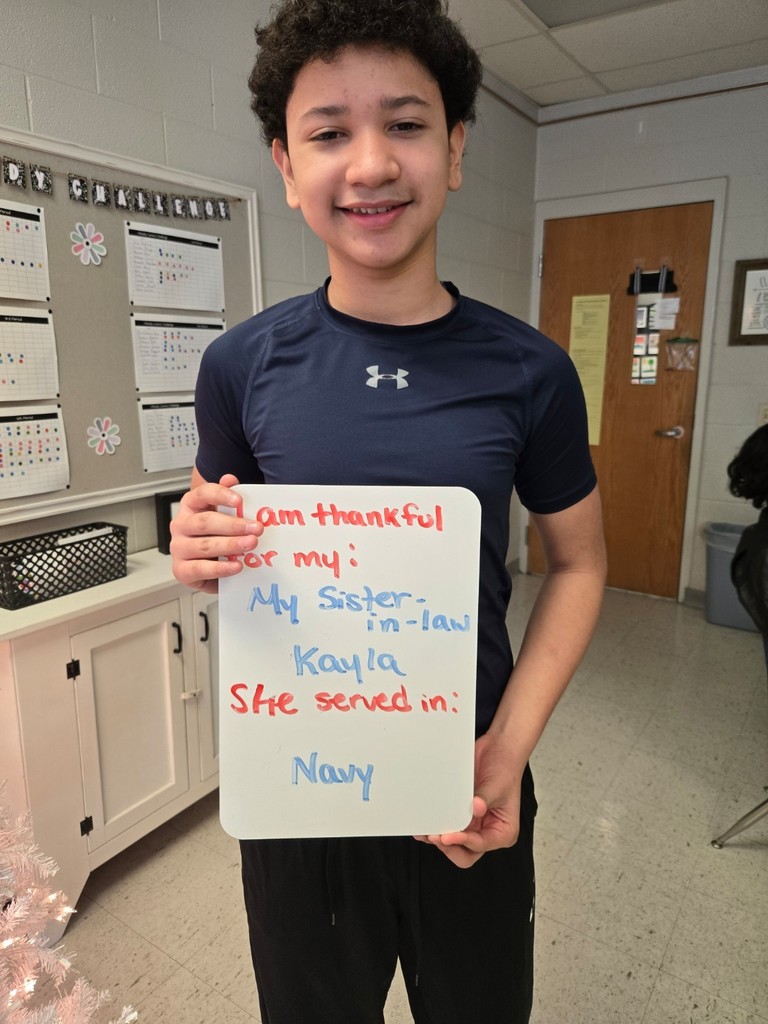 DY CHALLENGE
I am thankful
for my:
My Sister-
in-law
Kayla
She served in:
Navy